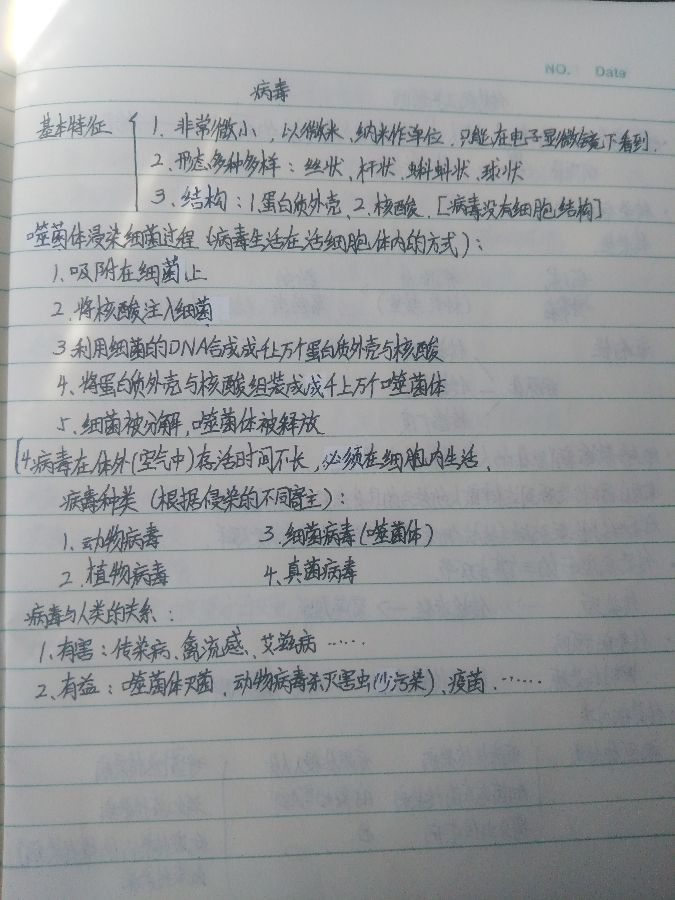 NO. Date
病毒
基本特征
1. 非常微小，以微米、纳米作单位，只能在电子显微镜下看到.
2. 形态多种多样：丝状、杆状、蝌蚪状、球状
3. 结构：1.蛋白质外壳、2.核酸、[病毒没有细胞结构]
噬菌体浸染细菌过程（病毒生活在活细胞体内的方式）：
1.吸附在细菌上
2.将核酸注入细菌
3.利用细菌的DNA合成成千上万个蛋白质外壳与核酸
4.将蛋白质外壳与核酸组装成成千上万个噬菌体
5.细菌被分解，噬菌体被释放
[4.病毒在体外（空气中）存活时间不长，必须在细胞内生活.
病毒种类（根据侵染的不同寄主）：
1.动物病毒 3.细菌病毒（噬菌体）
2.植物病毒 4.真菌病毒
病毒与人类的关系：
1.有害：传染病、禽流感、艾滋病……
2.有益：噬菌体灭菌、动物病毒杀灭害虫（少污染）、疫菌……